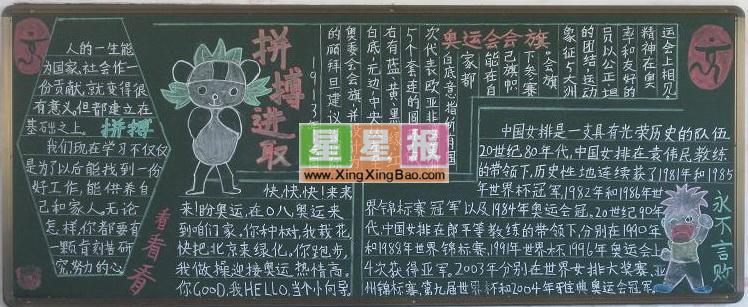 人的一生能
为国家,社会作一
份贡献,就变得很
有意义,但都建立在
基础之上。拼搏
我们现在学习不仅仅
是为了以后能找到一份
好工作,能供养自
己和家人,无论
怎样,你都要有
一颗自刻苦研
究,努力的心。
看看看
拼搏进取
快,快,快!来来
来!盼奥运,在08奥运来
到咱们家,你种树,我栽花
快把北京来绿化。你跑步,
我做操迎接奥运热情高。
你GOOD,我HELLO,当个小向导
星星报
www.XingXingBao.com
奥运会会旗
运会上相见。
精神在奥
率和友好的
员以公正坦
的团结,运动
象征5大洲
会旗
下参赛
己旗帜
能在自
家都
白底意指所有国
次代表欧亚非
5个套连的圆
右有蓝、黄、黑
白底,无边,中央
奥委会会旗,并
的顾拜旦建议
中国女排是一支具有光荣历史的队伍
20世纪80年代,中国女排在袁伟民教练
的带领下,历史性地连续获了1981年和1985
年世界杯冠军,1982年和1986年世
界锦标赛冠军以及1984年奥运会冠。20世纪90年
代,中国女排在郎平等教练的带领下,分别在1990年
和1988年世界锦标赛,1991年世界杯1996年奥运会上
4次获得亚军。2003年分别在世界女排大奖赛,亚
州锦标赛,第九届世界杯和2004年雅典奥运会冠军
永不言败